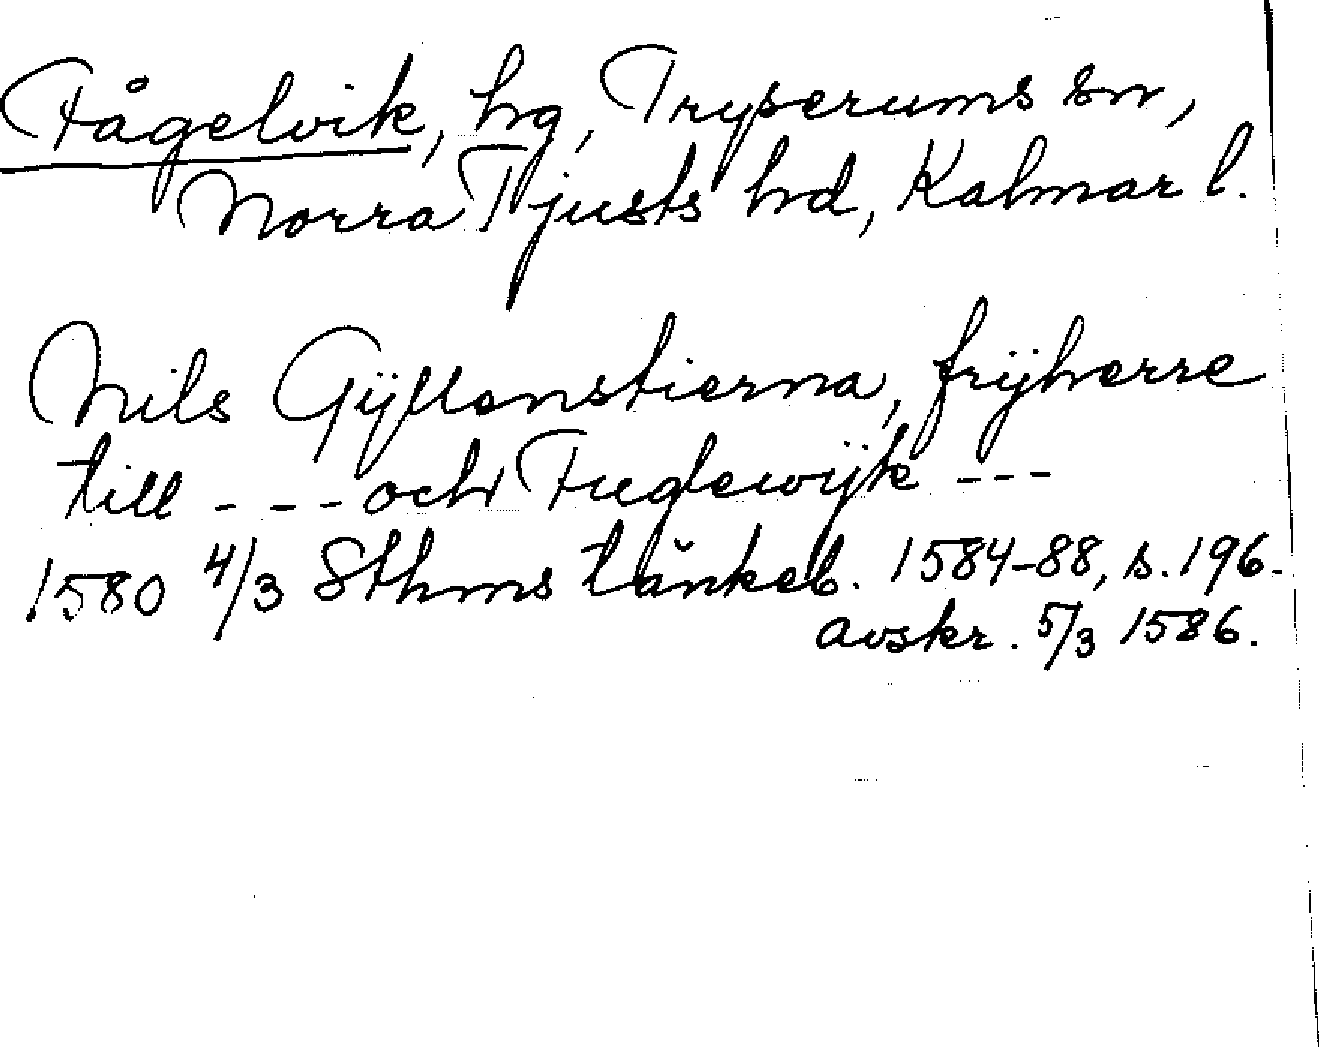 Fågelvik, hg, Tryserums sn,
Norra Tjusts hd, Kalmar l.
Nils Gÿllenstierna, frÿherre
till - - - och Fuglewÿk - - -
1580 4/3 Sthms tänkeb. 1584-88, s. 196.
avskr. 5/3 1586.